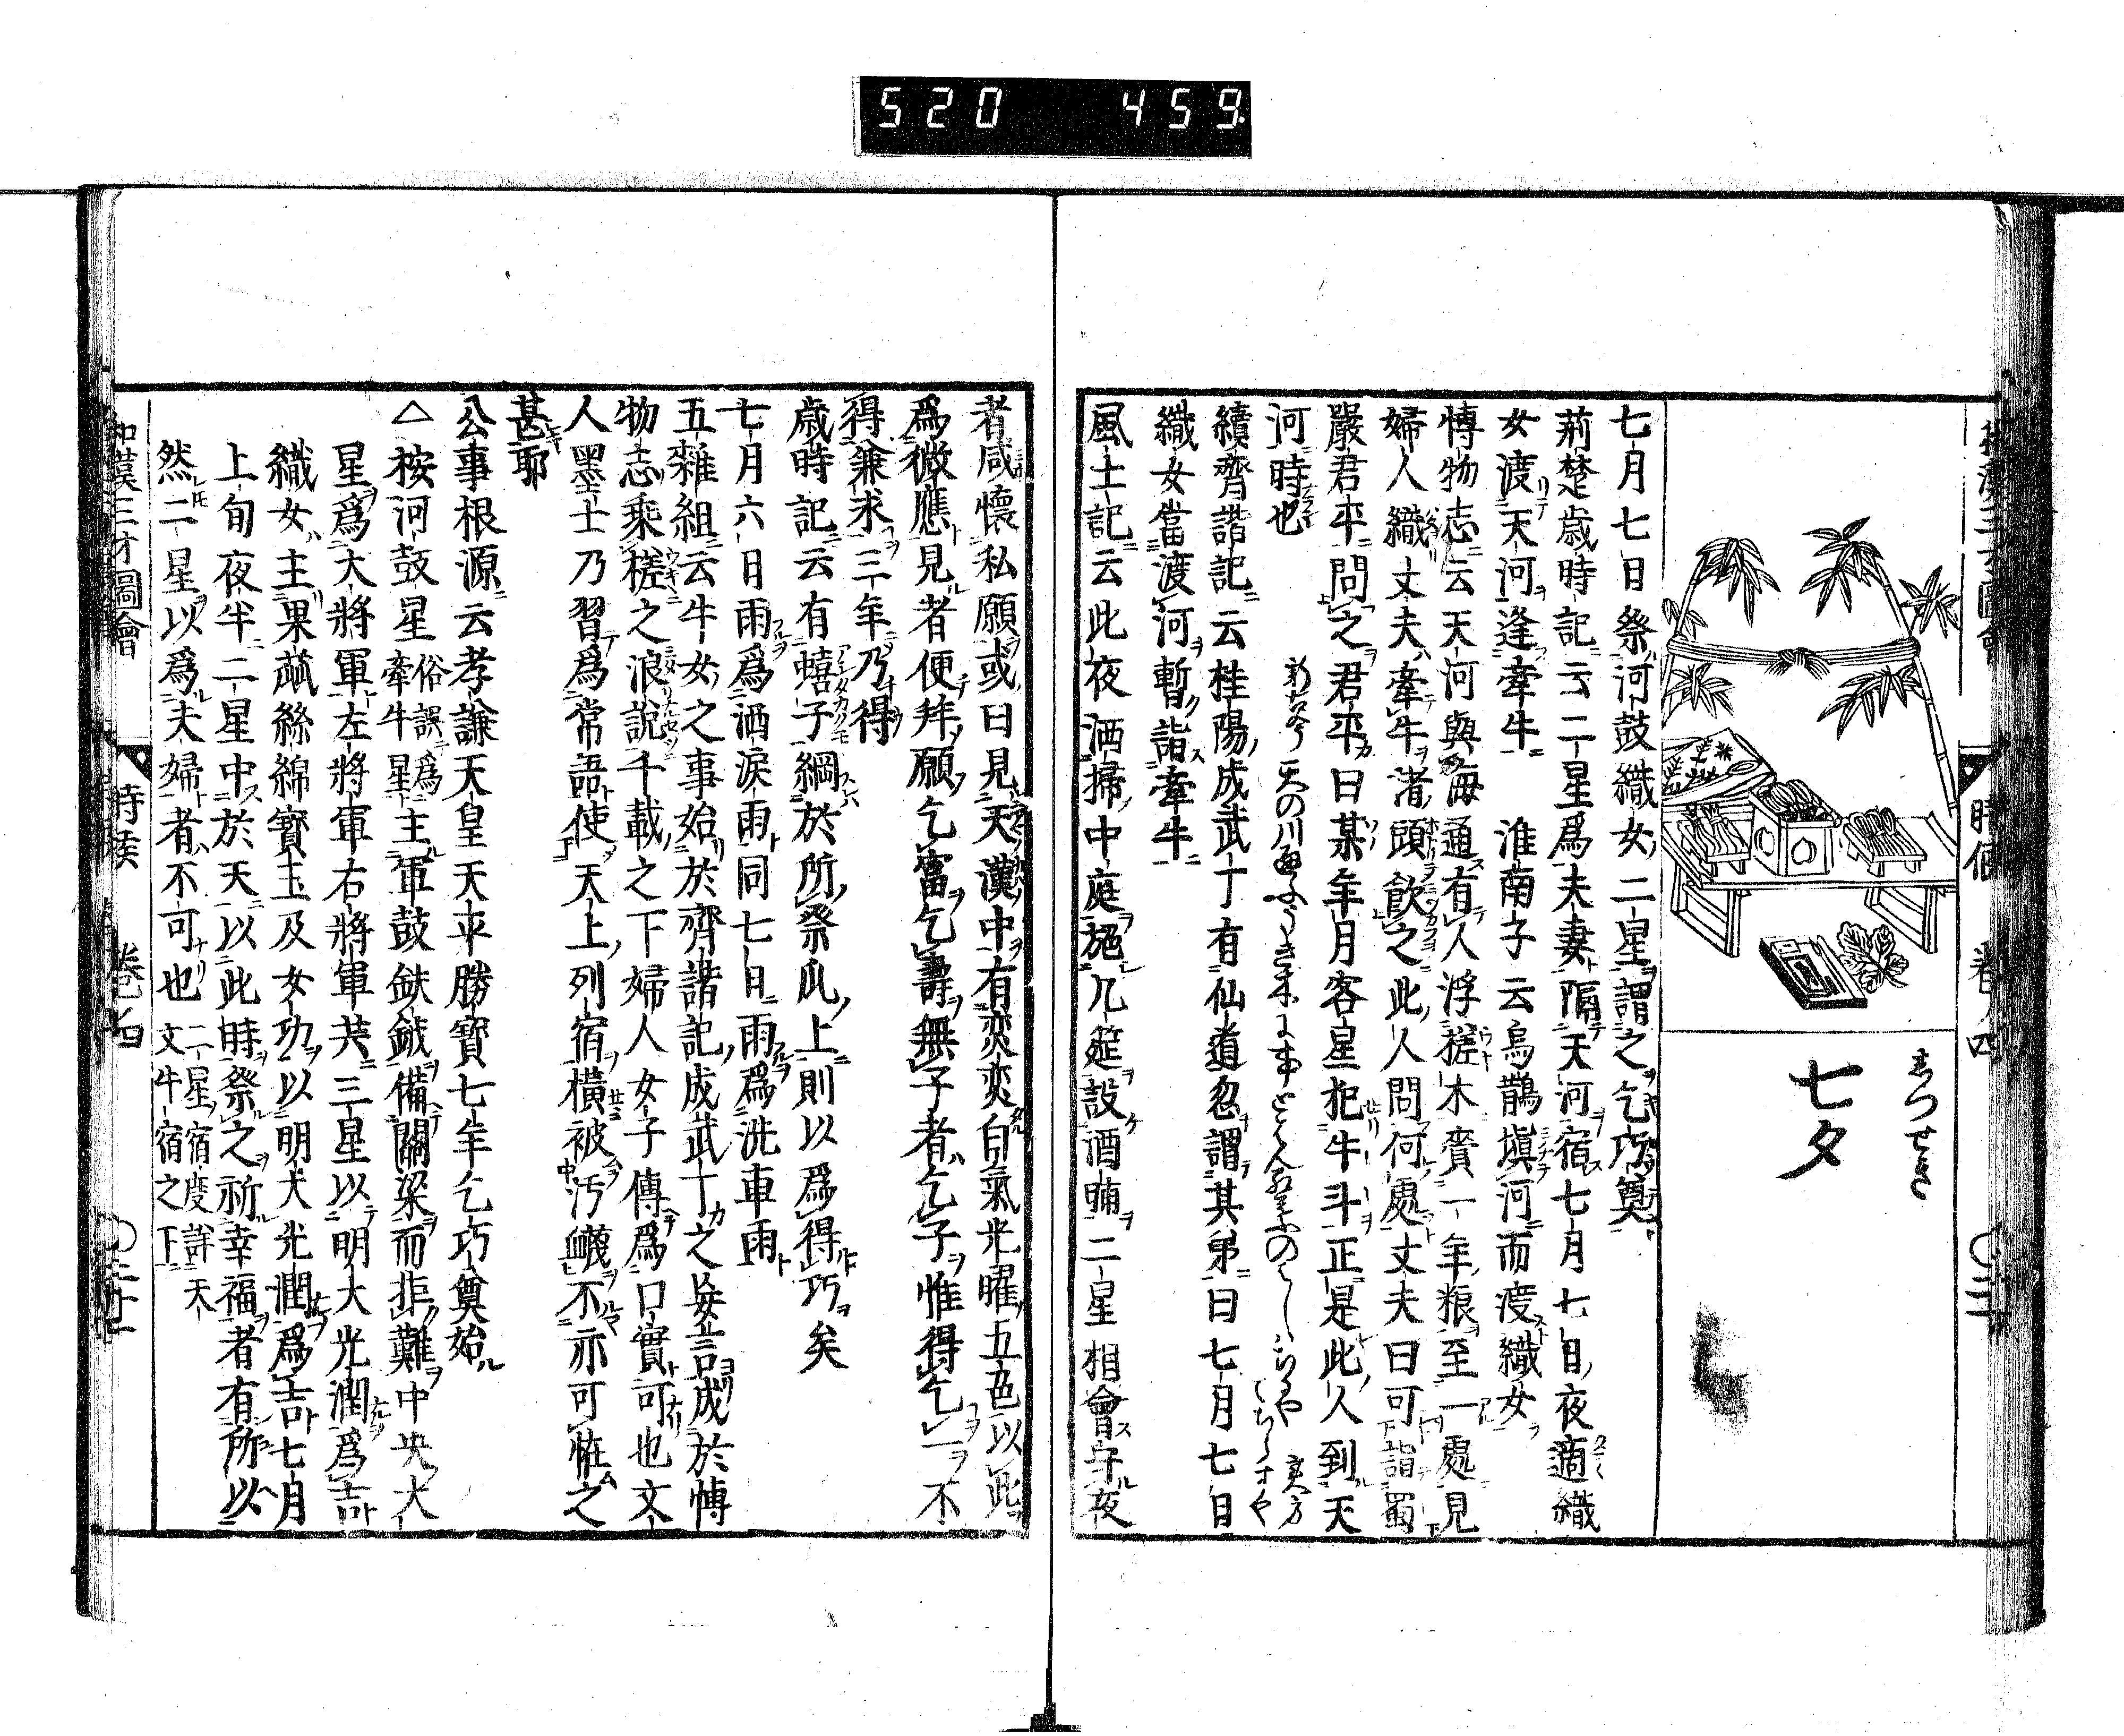 520 459
時候 卷ノ四
しつせき
七夕
七月七日祭河鼓織女二星謂之乞巧奠
荊楚歳時記云二星爲夫妻隔天河宿七月七日夜適織
女渡天河逢牽牛 淮南子云烏鵲塡河而渡織女
博物志云天河與海通有人浮槎木賚一年粮至一處見
婦人織丈夫牽牛渚頭飮之此人問何處丈夫曰可詣蜀
嚴君平問之君平曰某年月客星犯牛斗正是此人到天
河時也
新古今 天の川
実方
續齊諧記云桂陽成武丁有仙道忽謂其弟曰七月七日
織女當渡河暫詣牽牛
風土記云此夜洒掃中庭施几筵設酒脯二星相會守夜
者咸懷私願或曰見天漢中有奕奕白氣光曜五色以此
爲徴應見者便拜願乞富乞壽無子者乞子惟得乞一不
得兼求三年乃得
歳時記云有蟢子網於所祭瓜上則以爲得巧矣
七月六日雨爲洒淚雨同七日雨爲洗車雨
五雜組云牛女之事始於齊諧記成武丁之妄言成於博
物志乘槎之浪說千載之下婦人女子傳爲口實可也文
人墨士乃習爲常語使天上列宿橫被汚衊不亦可恠之
甚耶
公事根源云孝謙天皇天平勝寶七年乞巧奠始
△按河鼓星俗誤爲牽牛星主軍鼓鈇鉞備關梁而拒難中央大
星爲大將軍左將軍右將軍共三星以明大光潤爲吉
織女主果蓏絲綿寶玉及女功以明大光潤爲吉七月
上旬夜半二星中於天以此時祭之祈幸福者有所以
然二星以爲夫婦者不可也二星宿度詳天文牛宿之下
和漢三才圖會 時候 卷之四